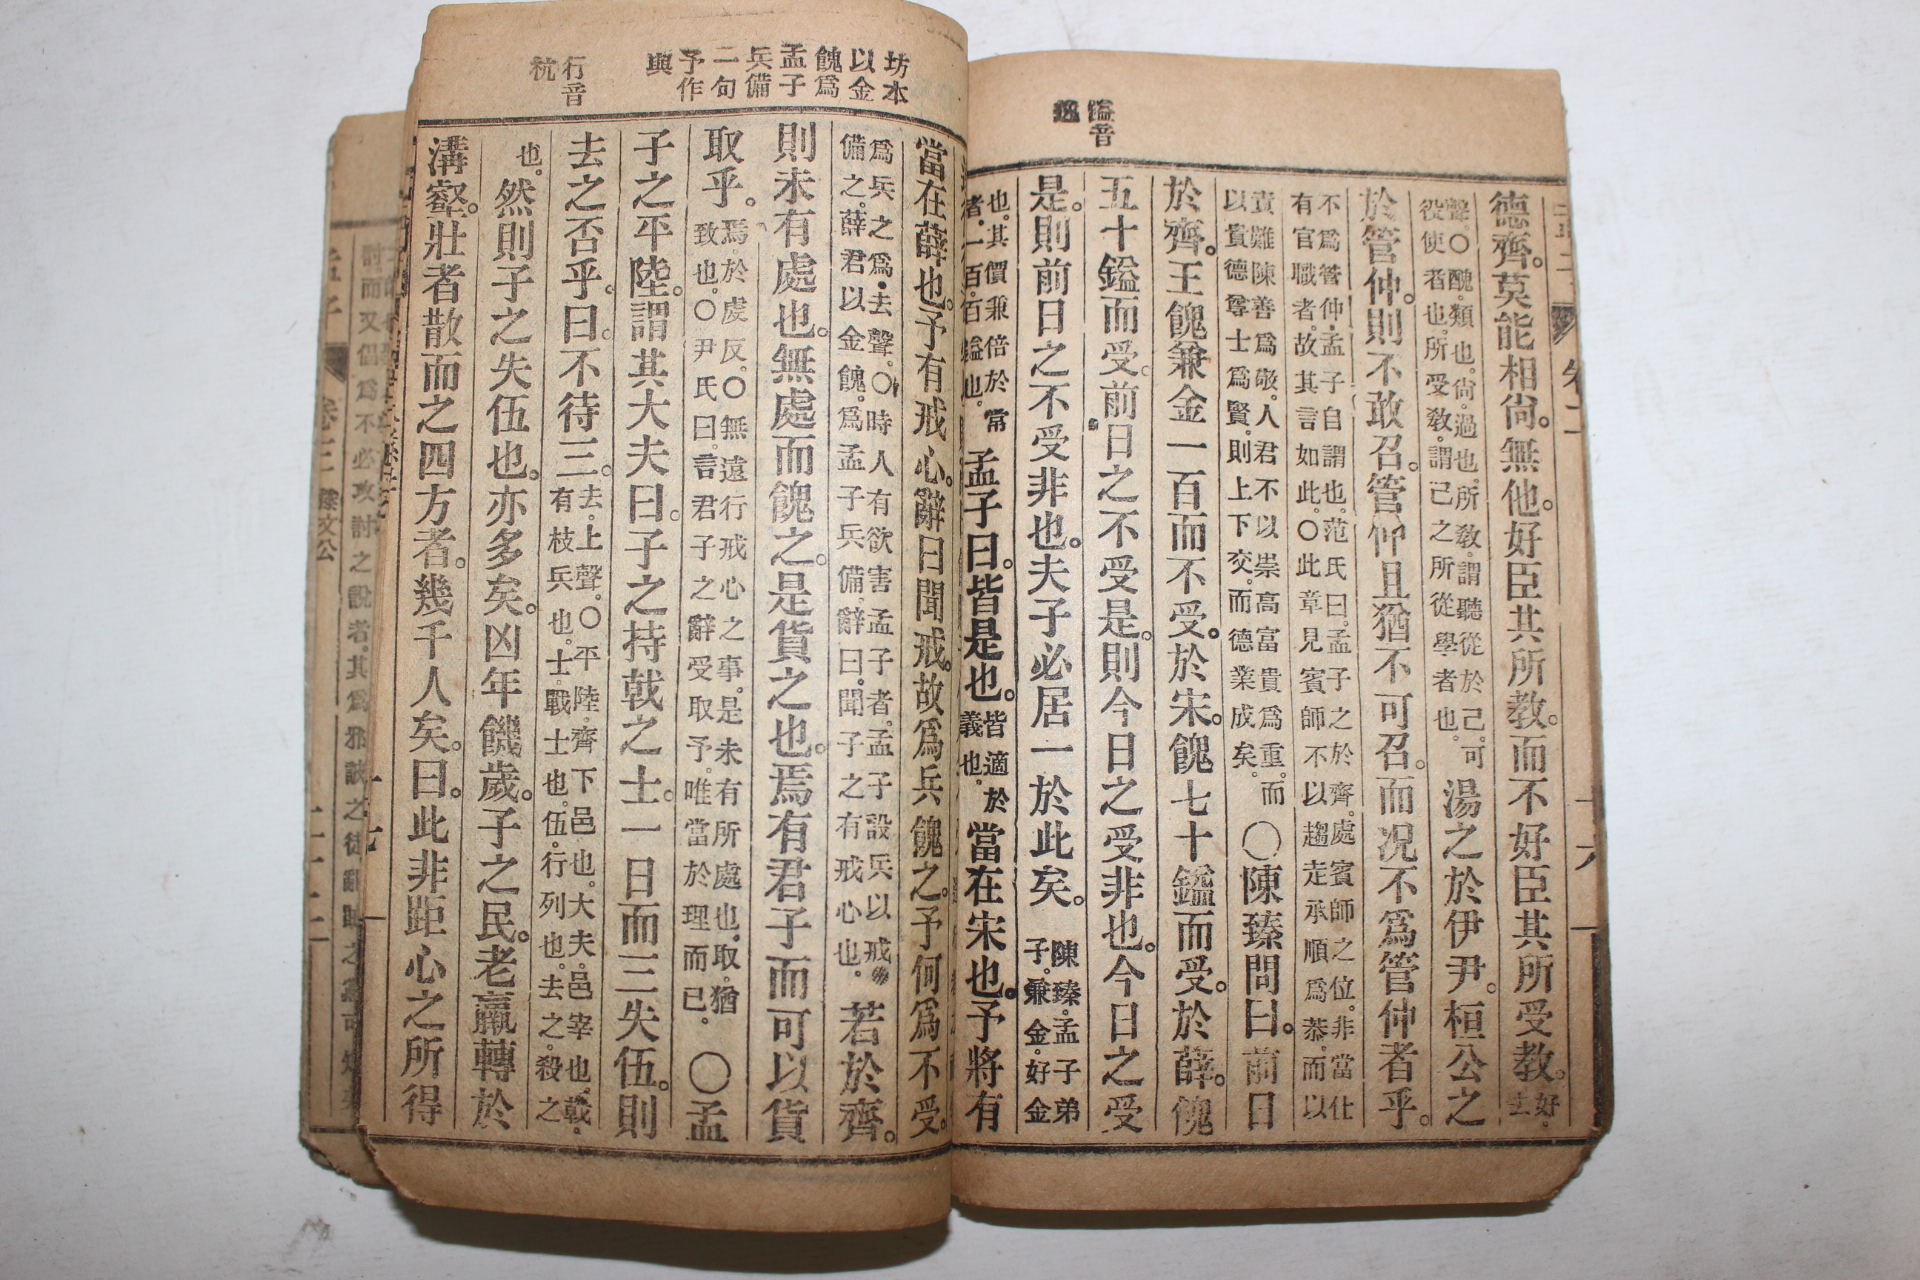 鎰音
德齊。莫能相尙。無他。好臣其所教。而不好臣其所受教。好去
聲。○醜。類也。尙。過也。所教。謂聽從於己。可
役使者也。所受敎。謂己之所從學者也。
湯之於伊尹。桓公之
於管仲。則不敢召。管仲且猶不可召。而况不爲管仲者乎。
不爲管仲。孟子自謂也。范氏曰。孟子之於齊。處賓師之位。非當仕
有官職者。故其言如此。○此章見賓師不以趨走承順爲恭。而以
責難陳善爲敬。人君不以崇高富貴爲重。而
以貴德尊士爲賢。則上下交。而德業成矣。
○陳臻問曰。前日
於齊。王餽兼金一百而不受。於宋。餽七十鎰而受。於薛。餽
五十鎰而受。前日之不受是。則今日之受非也。今日之受
是。則前日之不受非也。夫子必居一於此矣。
陳臻。孟子弟
子。兼金。好金
也。其價兼倍於常
者。一百。百鎰也。
孟子曰。皆是也。
皆適於
義也。
當在宋也。予將有
坊本
以金
餽爲
孟子
兵備
二句
予作
與
行音
杭
當在薛也。予有戒心。辭曰聞戒。故爲兵餽之。予何爲不受。
爲兵之爲。去聲。○時人有欲害孟子者。孟子設兵以戒
備之。薛君以金餽。爲孟子兵備。辭曰。聞子之有戒心也。
若於齊。
則未有處也。無處而餽之。是貨之也。焉有君子而可以貨
取乎。
焉。於虔反。○無遠行戒心之事。是未有所處也。取。猶
致也。○尹氏曰。言君子之辭受取予。唯當於理而已。
○孟
子之平陸。謂其大夫曰。子之持戟之士。一日而三失伍。則
去之否乎。曰。不待三。
去。上聲。○平陸。齊下邑也。大夫。邑宰也。戟。
有枝兵也。士。戰士也。伍。行列也。去之。殺之
也。
然則子之失伍也。亦多矣。凶年饑歲。子之民。老羸轉於
溝壑。壯者散而之四方者。幾千人矣。曰。此非距心之所得